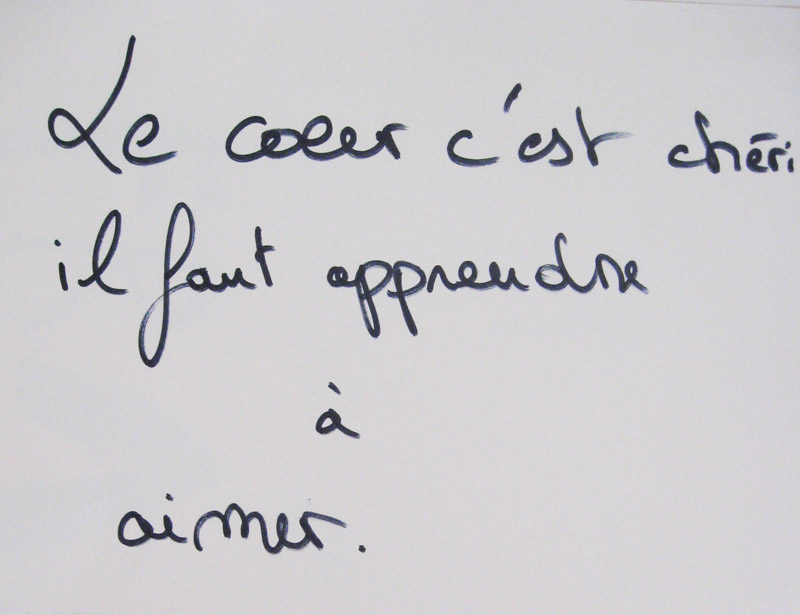 Le coeur c'est chéri
il faut apprendre
à
aimer.